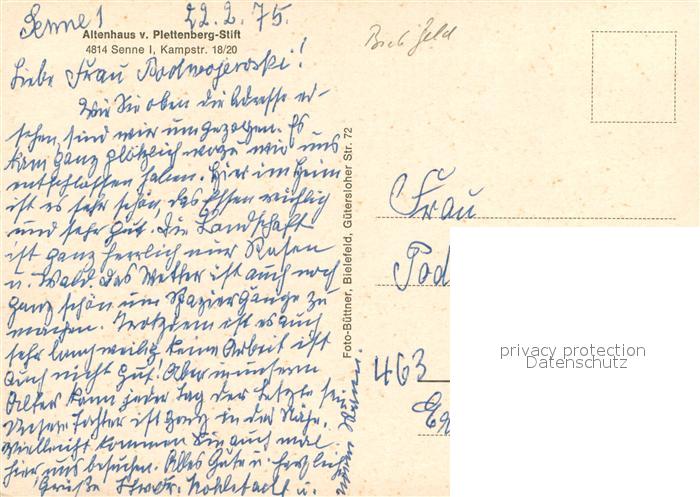 Senne 1 22.2.75.
Altenhaus v. Plettenberg-Stift
4814 Senne I, Kampstr. 18/20
Bielefeld
Liebe Frau Podwojewski!
Wie Sie oben die Adresse er-
sehen, sind wir umgezogen. Es
kam ganz plötzlich wozu wir uns
entschlossen haben. Hier im Heim
ist es sehr schön, das Essen richtig
und sehr gut. Die Landschaft
ist ganz herrlich nur Rasen
u. Wald. Das Wetter ist auch noch
ganz schön um Spaziergänge zu
machen. Trotzdem ist es auch
sehr langweilig keine Arbeit ist
auch nicht gut! Aber in unserm
Alter kann jeder Tag der Letzte sein
Unsere Tochter ist ganz in der Nähe.
Vielleicht kommen Sie auch mal
hier uns besuchen. Alles Gute u. herzliche
Grüße Ihr u.
Foto-Büttner, Bielefeld, Gütersloher Str. 72
Frau
Pod
463
privacy protection
Datenschutz